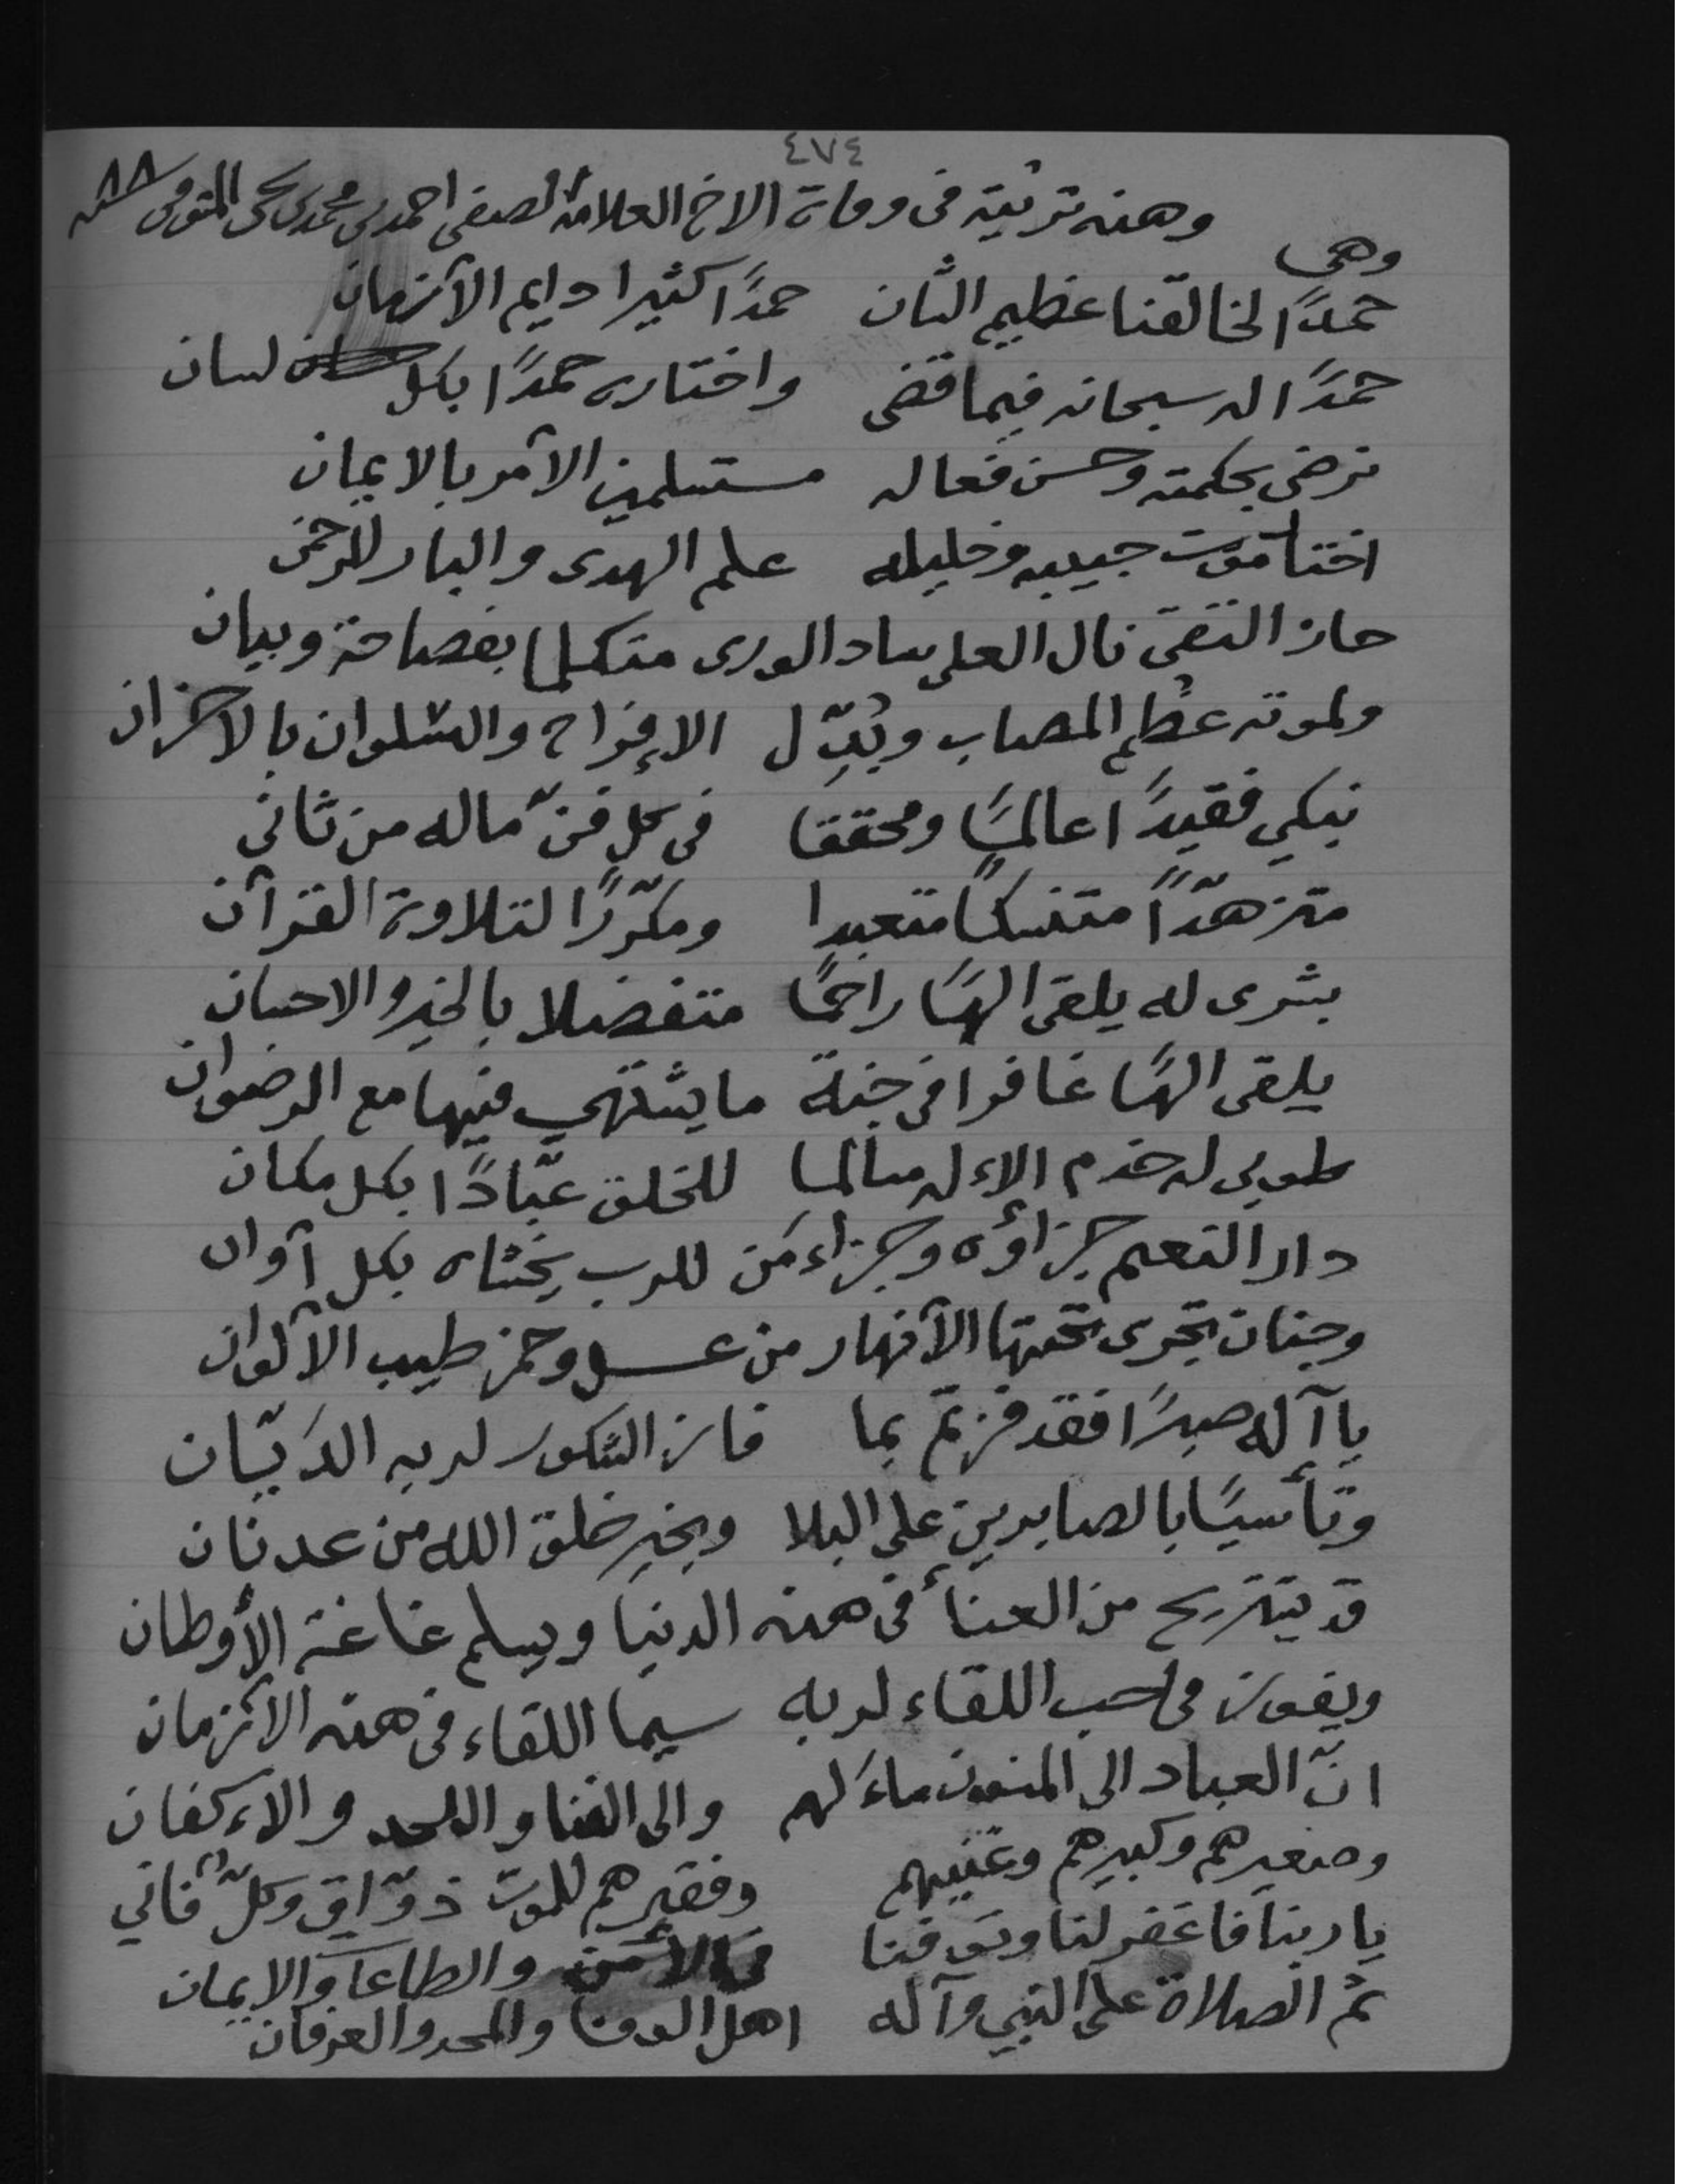 ٤٧٤
وهذه ترثية في وفاة الاخ العلامة الصفي احمد بن محمد بن يحيى المتوفى سنة ٨٨
وهي
حمدًا لخالقنا عظيم الشان حمدًا كثيرا دايم الأزمان
حمدًا له سبحانه فيما قضى واختاره حمدًا بكل لسان
نرضى بحكمته وحسن فعاله مستسلمين الأمر بالايمان
اختار موت حبيبه وخليله علم الهدى والبار للرحمن
حاز التقى نال العلى ساد الورى متكلما بفصاحة وبيان
ولموته عظُم المصاب وبُدِّل الإفراح والسلوان بالاحزان
نبكي فقيدًا عالمًا ومحققا في كل فنّ ماله من ثاني
متزهّدًا متنسكًا متعبدا ومكرّرًا لتلاوة القرآن
بشرى له يلقى الهًا راحمًا متفضلا بالخير والاحسان
يلقى الهًا غافرا في جنة ما يشتهي فيها مع الرضوان
طوبى له خدم الإله مسالما للخلق عبّادًا بكل مكان
دار النعيم جزاؤه وجزاء من للرب يخشاه بكل آوان
وجنان تجرى تحتها الأنهار من عسل وخمر طيب الألوان
يا آله صبرًا فقد فزتم بما فاز الشكور لربه الديّان
وتأسيًا بالصابرين على البلا وبخير خلق الله من عدنان
قد يستريح من العنأ في هذه الدنيا ويسلم غاغة الأوطان
ويفوز من حب اللقاء لربه سيما اللقاء في هذه الأزمان
انّ العباد الى المنون مأ لهم والى الفنا واللحد والإكفان
وصغيرهم وكبيرهم وغنيهم وفقيرهم للموت ذوّاق وكلٌّ فاني
يا ربنا فاغفر لنا وتوفنا في الأمن والطاعا والإيمان
ثم الصلاة على النبي وآله اهل الوفا والمجد والعرفان